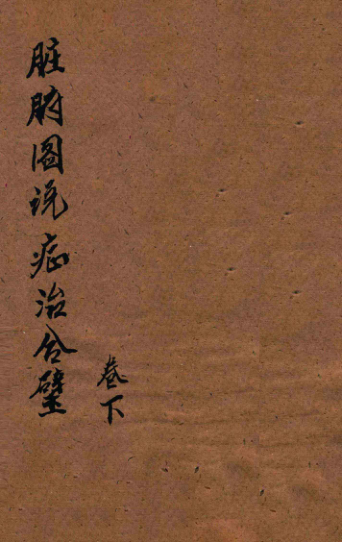 脏腑图说症治合璧
卷下